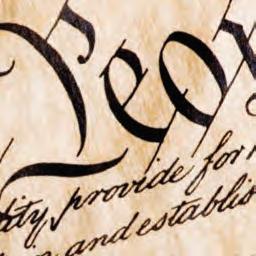 Peop
ity, provide for
and establis